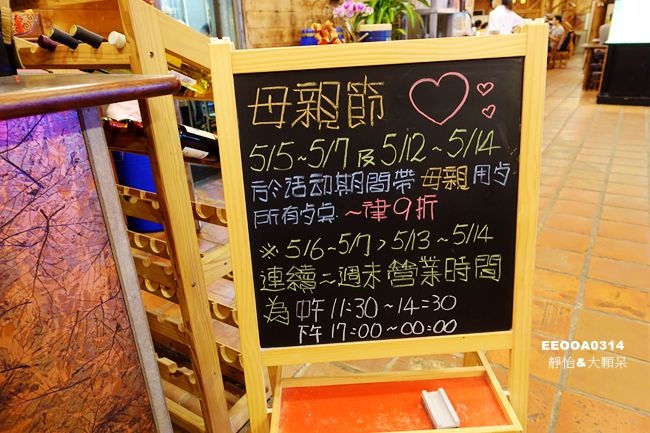 母親節
5/5~5/7 及 5/12~5/14
於活动期間帶母親用歺
所有歺桌~律9折
※5/6~5/7,5/13~5/14
連續二週末營業時間
為 中午 11:30~14:30
下午 17:00~00:00
EEOOA0314
靜怡&大顆呆